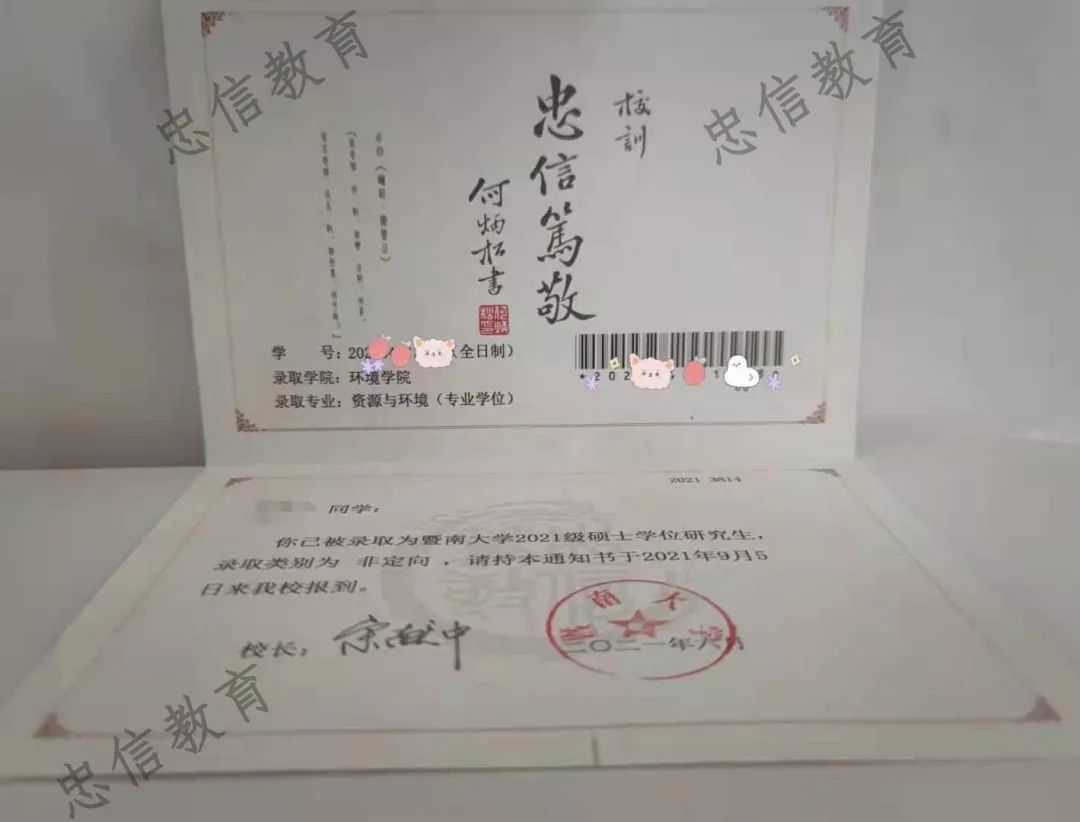 忠信教育
忠信教育
校训
忠信篤敬
何炳松書
学 号：202 （全日制）
录取学院：环境学院
录取专业：资源与环境（专业学位）
2021 3814
同学：
你已被录取为暨南大学2021级硕士学位研究生，
录取类别为 非定向 ，请持本通知书于2021年9月5
日来我校报到。
校长：宋献中
暨南大学
二〇二一年六月
忠信教育